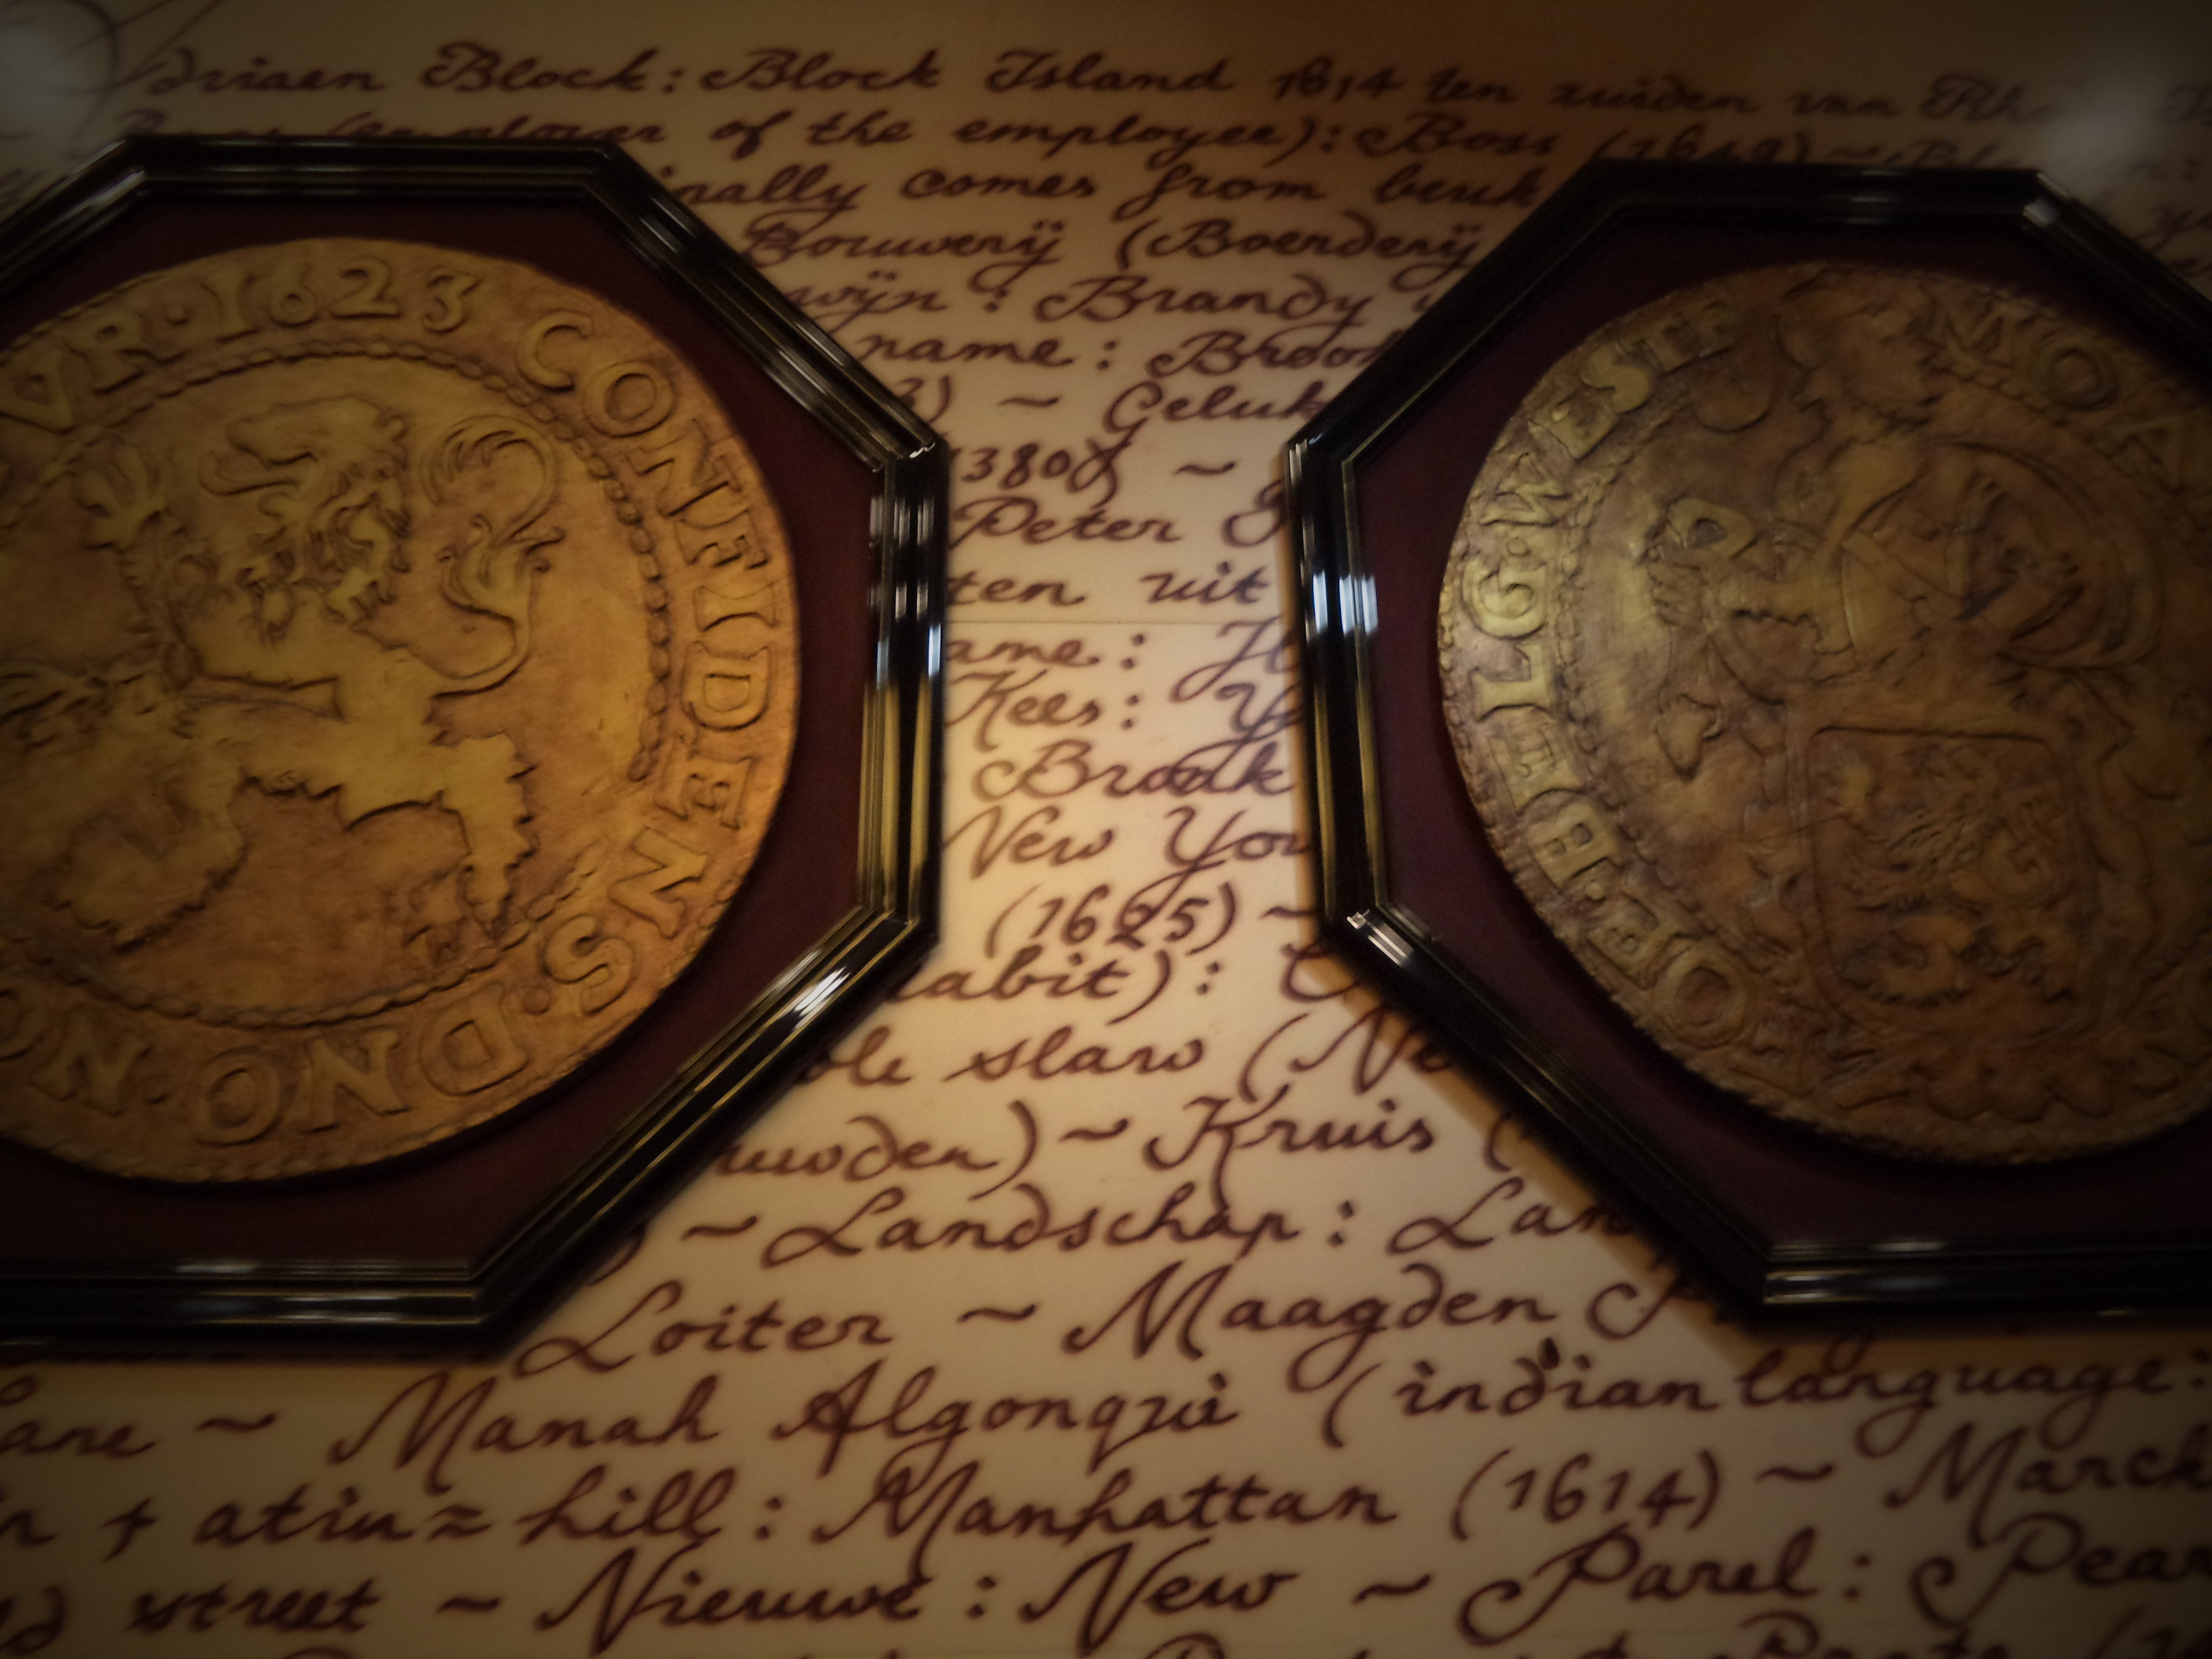 driaen Block: Block Island 1614 ten zuiden van
of the employee): Boss (1649) ~
inally comes from beuk
Bouwerÿ (Boerderÿ
wÿn: Brandy
name: Broo
3) ~ Geluk
1380) ~
Peter
ten uit
ame:
Kees: Y
Brook
New Yor
(1625) ~
abit):
ole slaw (Ne
uwden) ~ Kruis (
) ~ Landschap: Lan
Loiter ~ Maagden P
ane ~ Manah Algonqui (indian language:
+ atin = hill: Manhattan (1614) ~ Marck
street ~ Nieuwe: New ~ Parel: Pear
VR·1623
CONFIDENS·DNO·NO
MO
OE·BELG·WESTF